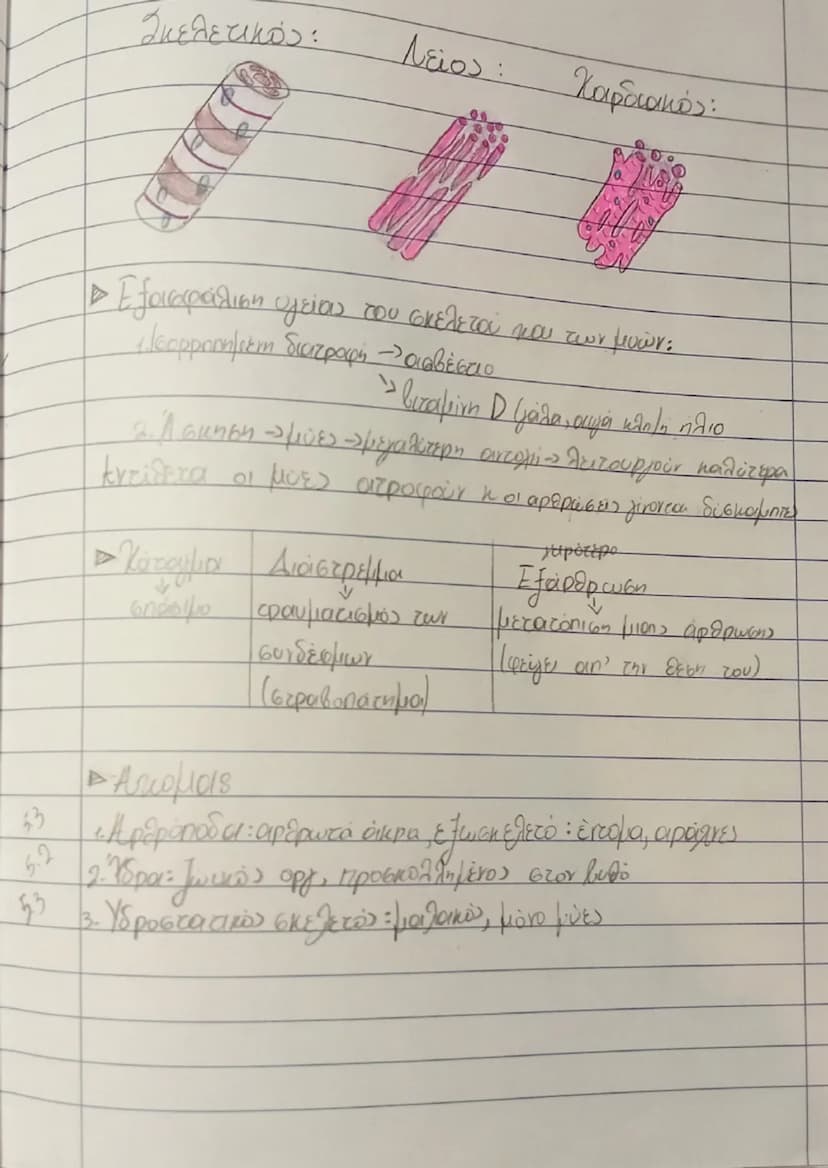 Σκελετικός:
Λείος:
Καρδιακός:
▷ Εξασφάλιση υγείας του σκελετού και των μυών:
1. Ισορροπημένη διατροφή → ασβέστιο
↘ βιταμίνη D γάλα, αυγά κλπ/ ήλιο
2. Άσκηση → μύες → μεγαλύτερη αντοχή → λειτουργούν καλύτερα
Αντίθετα οι μύες ατροφούν κ οι αρθρώσεις γίνονται δύσκαμπτες
▷ Κάταγμα
↓
σπάσιμο
Διάστρεμμα
↓
τραυματισμός των
συνδέσμων
(στραβοπάτημα)
Εξάρθρωση
↓
μετατόπιση μιας άρθρωσης
(φεύγει απ' την θέση του)
▷
53 1. Αρθρόποδα: αρθρωτά άκρα, εξωσκελετό: έντομα, αράχνες
52 2. Ύδρα: ζωικός οργ, προσκολλημένος στον βυθό
53 3. Υδροστατικός σκελετός: μαλακός, μόνο μύες